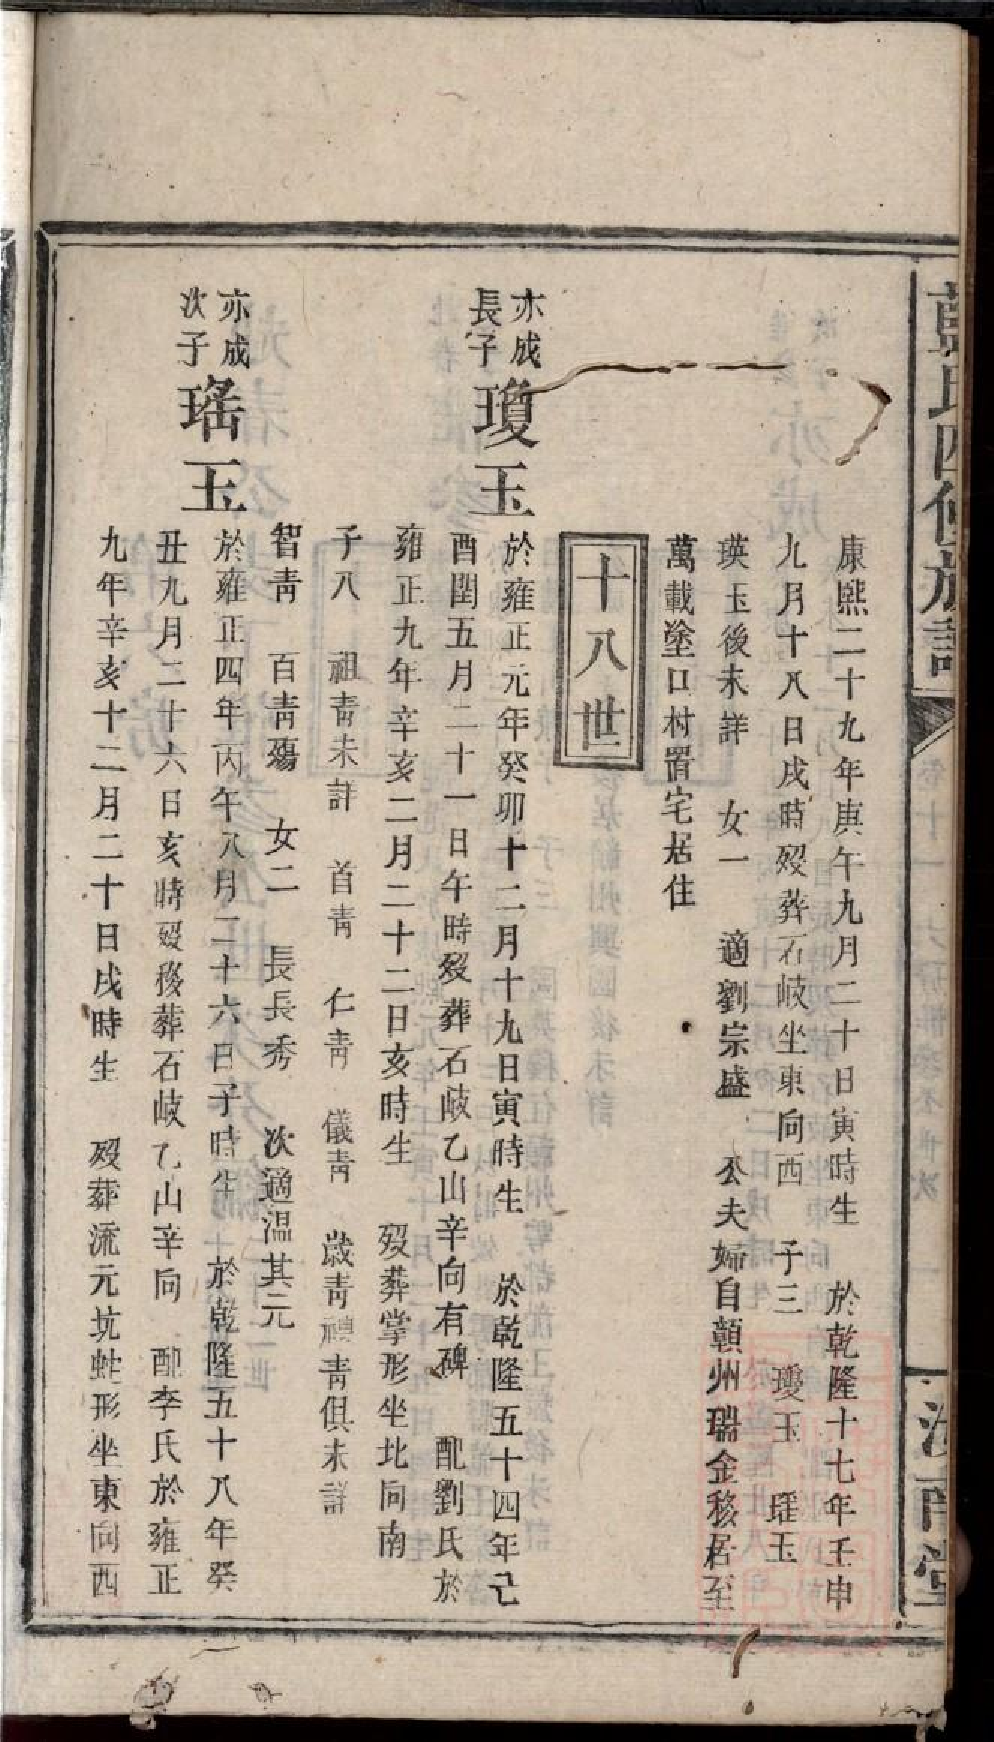 藍氏四修族譜
汝南堂
康熙二十九年庚午九月二十日寅時生 於乾隆十七年壬申
九月十八日戌時歿葬石岐坐東向西 子三 瓊玉 瑤玉
瑛玉後未詳 女一 適劉宗盛 公夫婦自贛州瑞金移居至
萬載塗口村置宅居住
十八世
亦成長子 瓊玉 於雍正元年癸卯十二月十九日寅時生 於乾隆五十四年己
酉閏五月二十一日午時歿葬石岐乙山辛向有碑 配劉氏於
雍正九年辛亥二月二十二日亥時生 歿葬掌形坐北向南
子八 祖青未詳 首青 仁青 儀青 歲青 聘青俱未詳
智青 百青殤 女二 長長秀 次適溫其元
亦成次子 瑤玉 於雍正四年丙午八月二十六日子時生 於乾隆五十八年癸
丑九月二十六日亥時歿移葬石岐乙山辛向 配李氏於雍正
九年辛亥十二月二十日戌時生 歿葬流元坑蛙形坐東向西